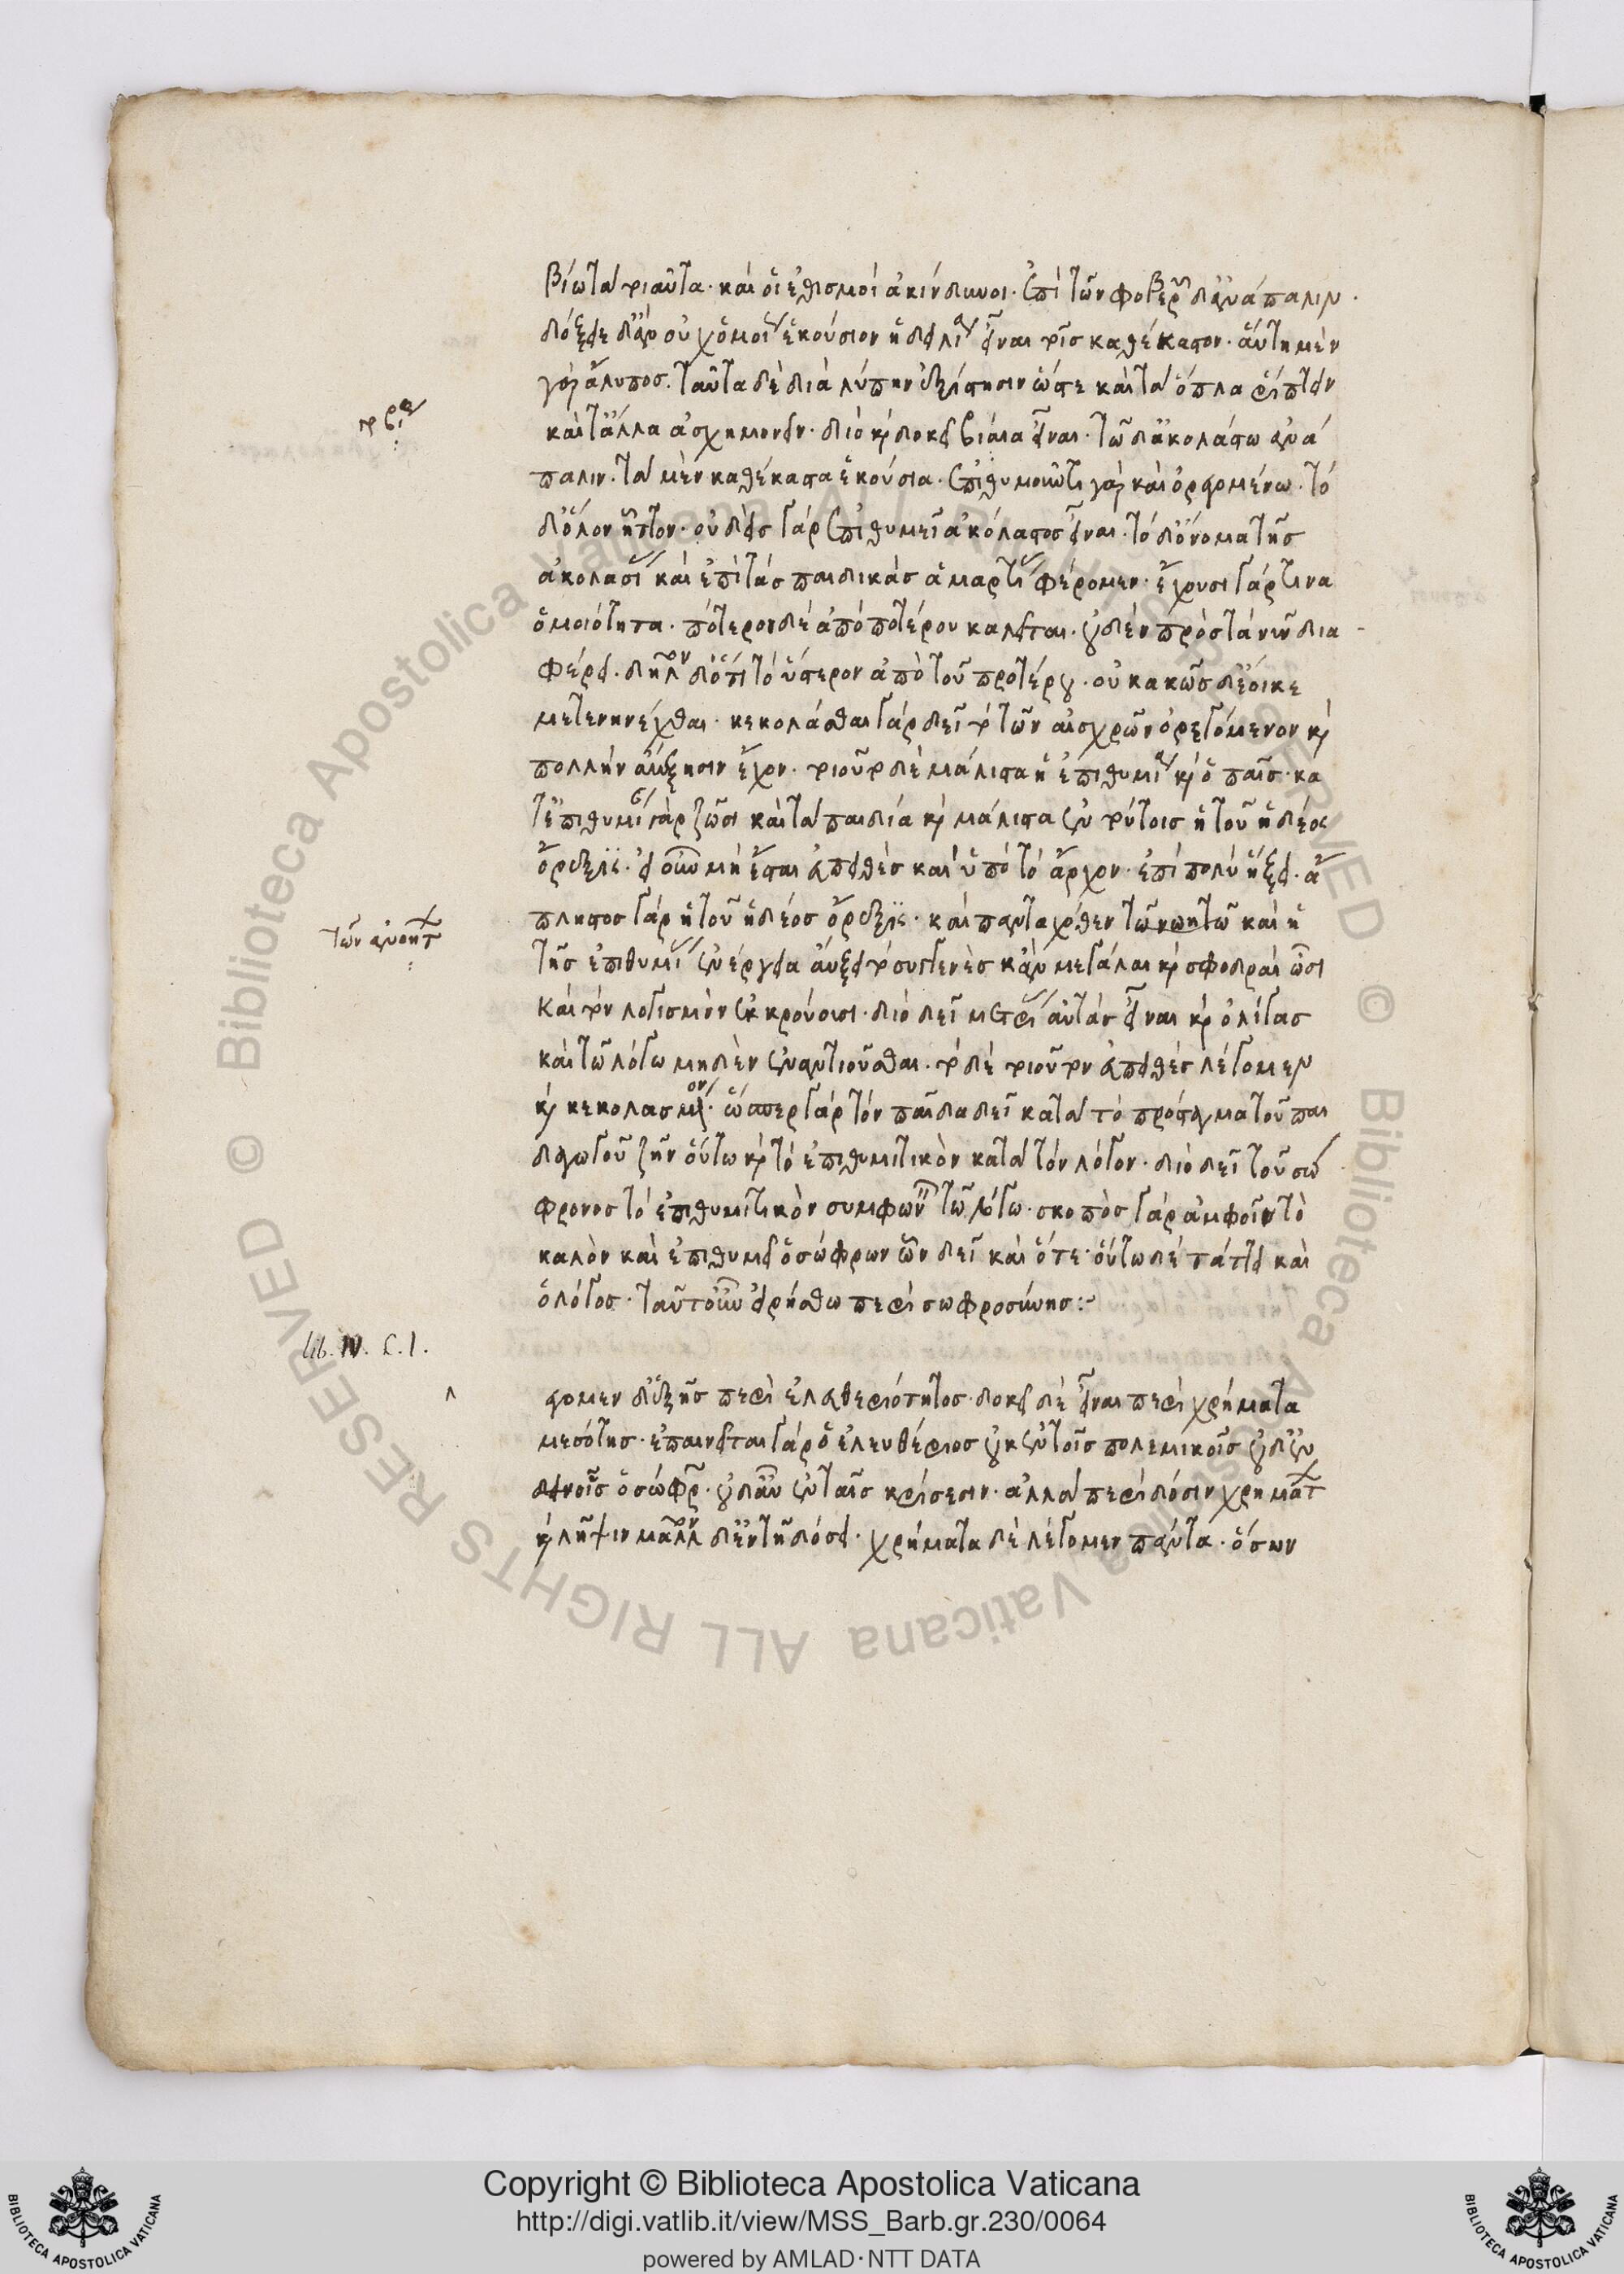 βίω τὰ τοιαῦτα· καὶ οἱ ἐθισμοὶ ἀκίνδυνοι· ἐπὶ τῶν φοβερῶν δ' ἀνάπαλιν·
δόξειε δ' ἂν οὐχ ὁμοίως ἑκούσιον ἡ δειλία εἶναι τοῖς καθέκαστον· αὕτη μὲν
γὰρ ἄλυπος. ταῦτα δὲ διὰ λύπην ἐξίστησιν ὥστε καὶ τὰ ὅπλα ῥίπτειν
καὶ τἄλλα ἀσχημονεῖν· διὸ καὶ δοκεῖ βίαια εἶναι· τῶ δ' ἀκολάστω ἀνά
παλιν· τὰ μὲν καθέκαστα ἑκούσια· ἐπιθυμοῦντι γὰρ καὶ ὀρεγομένω· τὸ
δ' ὅλον ἧττον· οὐδεὶς γὰρ ἐπιθυμεῖ ἀκόλαστος εἶναι· τὸ δ' ὄνομα τῆς
ἀκολασίας καὶ ἐπὶ τὰς παιδικὰς ἁμαρτίας φέρομεν· ἔχουσι γάρ τινα
ὁμοιότητα· πότερον δὲ ἀπὸ ποτέρου καλεῖται· οὐδὲν πρὸς τὰ νῦν δια
φέρει· δῆλον δ' ὅτι τὸ ὕστερον ἀπὸ τοῦ προτέρου· οὐ κακῶς δ' ἔοικε
μετενηνέχθαι· κεκολάσθαι γὰρ δεῖ τὸ τῶν αἰσχρῶν ὀρεγόμενον καὶ
πολλὴν αὔξησιν ἔχον· τοιοῦτο δὲ μάλιστα ἡ ἐπιθυμία καὶ ὁ παῖς· κα
τ' ἐπιθυμίαν γὰρ ζῶσι καὶ τὰ παιδία καὶ μάλιστα ἐν τούτοις ἡ τοῦ ἡδέος
ὄρεξις· εἰ οὖν μὴ ἔσται εὐπειθὲς καὶ ὑπὸ τὸ ἄρχον· ἐπὶ πολὺ ἥξει· ἄ
πληστος γὰρ ἡ τοῦ ἡδέος ὄρεξις· καὶ πανταχόθεν τῶ νωητῶ καὶ ἡ
τῆς ἐπιθυμίας ἐνέργεια αὔξει τὸ συγγενὲς κἂν μεγάλαι καὶ σφοδραὶ ὦσι
καὶ τὸν λογισμὸν ἐκκρούουσι· διὸ δεῖ μετρίας αὐτὰς εἶναι καὶ ὀλίγας
καὶ τῶ λόγω μηδὲν ἐναντιοῦσθαι· τὸ δὲ τοιοῦτον εὐπειθὲς λέγομεν
καὶ κεκολασμένον· ὥσπερ γὰρ τὸν παῖδα δεῖ κατὰ τὸ πρόσταγμα τοῦ παι
δαγωγοῦ ζῆν οὕτω καὶ τὸ ἐπιθυμιτικὸν κατὰ τὸν λόγον· διὸ δεῖ τοῦ σώ
φρονος τὸ ἐπιθυμιτικὸν συμφωνεῖν τῶ λόγω· σκοπὸς γὰρ ἀμφοῖν τὸ
καλὸν καὶ ἐπιθυμεῖ ὁ σώφρων ὧν δεῖ καὶ ὅτε· οὕτω δὲ τάττει καὶ
ὁ λόγος· ταῦτ' οὖν εἰρήσθω περὶ σωφροσύνης:~
lib. IV. C. 1.
γομεν δ' ἑξῆς περὶ ἐλευθεριότητος· δοκεῖ δὲ εἶναι περὶ χρήματα
μεσότης· ἐπαινεῖται γὰρ ὁ ἐλευθέριος οὐκ ἐν τοῖς πολεμικοῖς οὐδ' ἐν
οἷς ὁ σώφρων· οὐδ' αὖ ἐν ταῖς κρίσεσιν· ἀλλὰ περὶ δόσιν χρημάτων
καὶ λῆψιν μᾶλλον δ' ἐν τῆ δόσει· χρήματα δὲ λέγομεν πάντα· ὅσων
τῶν ἀνοήτ
Copyright © Biblioteca Apostolica Vaticana
http://digi.vatlib.it/view/MSS_Barb.gr.230/0064
powered by AMLAD·NTT DATA
BIBLIOTECA APOSTOLICA VATICANA
BIBLIOTECA APOSTOLICA VATICANA
© Biblioteca Apostolica Vaticana ALL RIGHTS RESERVED © Biblioteca Apostolica Vaticana ALL RIGHTS RESERVED